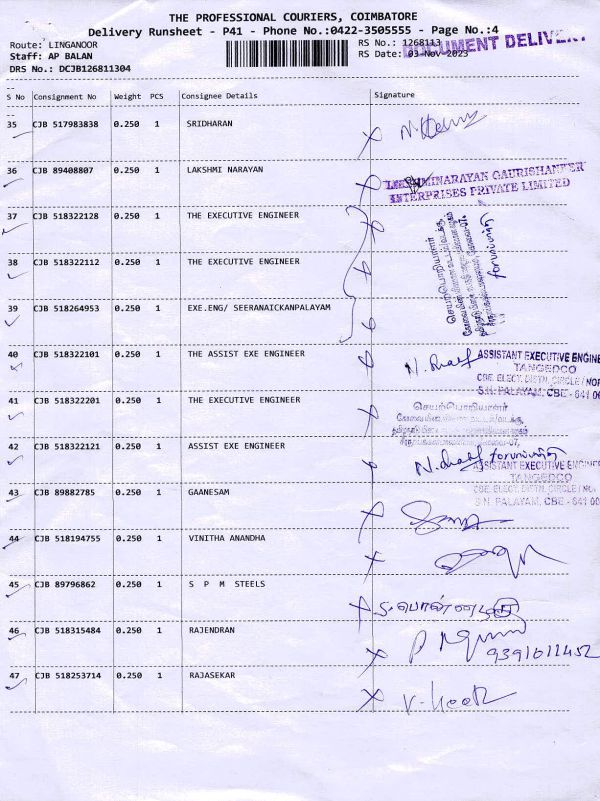 THE PROFESSIONAL COURIERS, COIMBATORE
Delivery Runsheet - P41 - Phone No.:0422-3505555 - Page No.:4
Route: LINGANOOR RS No.: 1268113
Staff: AP BALAN RS Date: 03-Nov-2023
DRS No.: DCJB126811304
DOCUMENT DELIVERY
S No Consignment No Weight PCS Consignee Details Signature
35 CJB 517983838 0.250 1 SRIDHARAN
36 CJB 89408807 0.250 1 LAKSHMI NARAYAN
LAKSHMINARAYAN GAURISHANKER
ENTERPRISES PRIVATE LIMITED
37 CJB 518322128 0.250 1 THE EXECUTIVE ENGINEER
38 CJB 518322112 0.250 1 THE EXECUTIVE ENGINEER
செயற்பொறியாளர்
39 CJB 518264953 0.250 1 EXE.ENG/ SEERANAICKANPALAYAM
40 CJB 518322101 0.250 1 THE ASSIST EXE ENGINEER
ASSISTANT EXECUTIVE ENGINE
TANGEDCO
CBE. ELECT. DISTN. CIRCLE / NOR
S.N. PALAYAM, CBE - 641 00
41 CJB 518322201 0.250 1 THE EXECUTIVE ENGINEER
செயற்பொறியாளர்
42 CJB 518322121 0.250 1 ASSIST EXE ENGINEER
ASSISTANT EXECUTIVE ENGINEER
TANGEDCO
CBE. ELECT. DISTN. CIRCLE / NOR
S.N. PALAYAM, CBE - 641 00
43 CJB 89882785 0.250 1 GAANESAM
44 CJB 518194755 0.250 1 VINITHA ANANDHA
45 CJB 89796862 0.250 1 S P M STEELS
46 CJB 518315484 0.250 1 RAJENDRAN
9391011452
47 CJB 518253714 0.250 1 RAJASEKAR